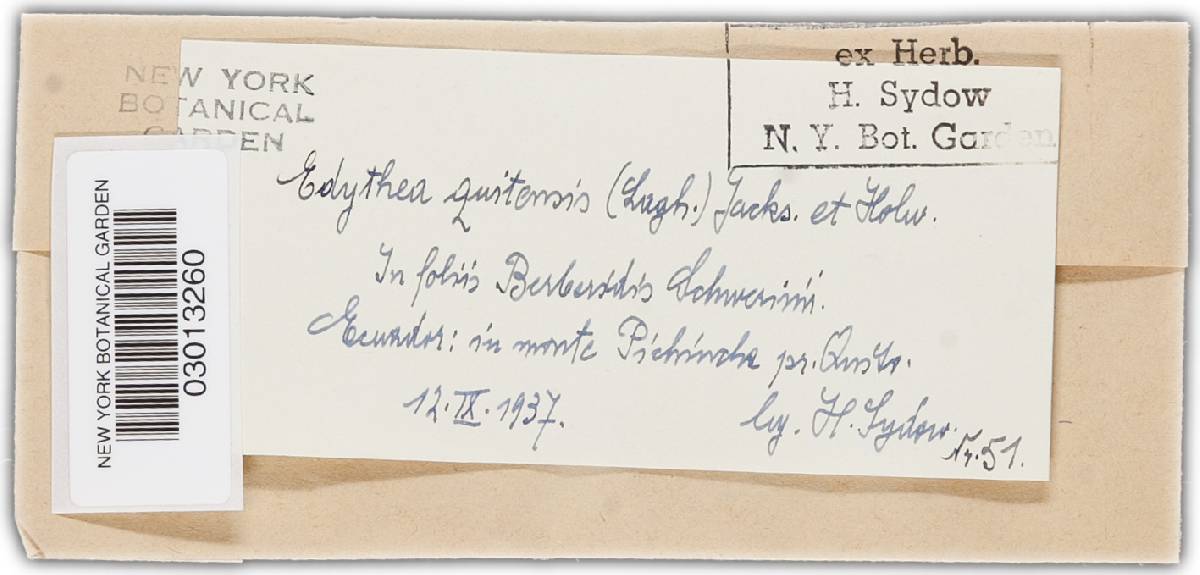 NEW YORK
BOTANICAL
GARDEN
ex Herb.
H. Sydow
N. Y. Bot. Garden
Edythea quitensis (Lagh.) Jacks. et Holw.
In foliis Berberidis Schwerinii.
Ecuador: in monte Pichincha pr. Quito.
12.IX.1937.
leg. H. Sydow.
Nr. 51.
NEW YORK BOTANICAL GARDEN
03013260